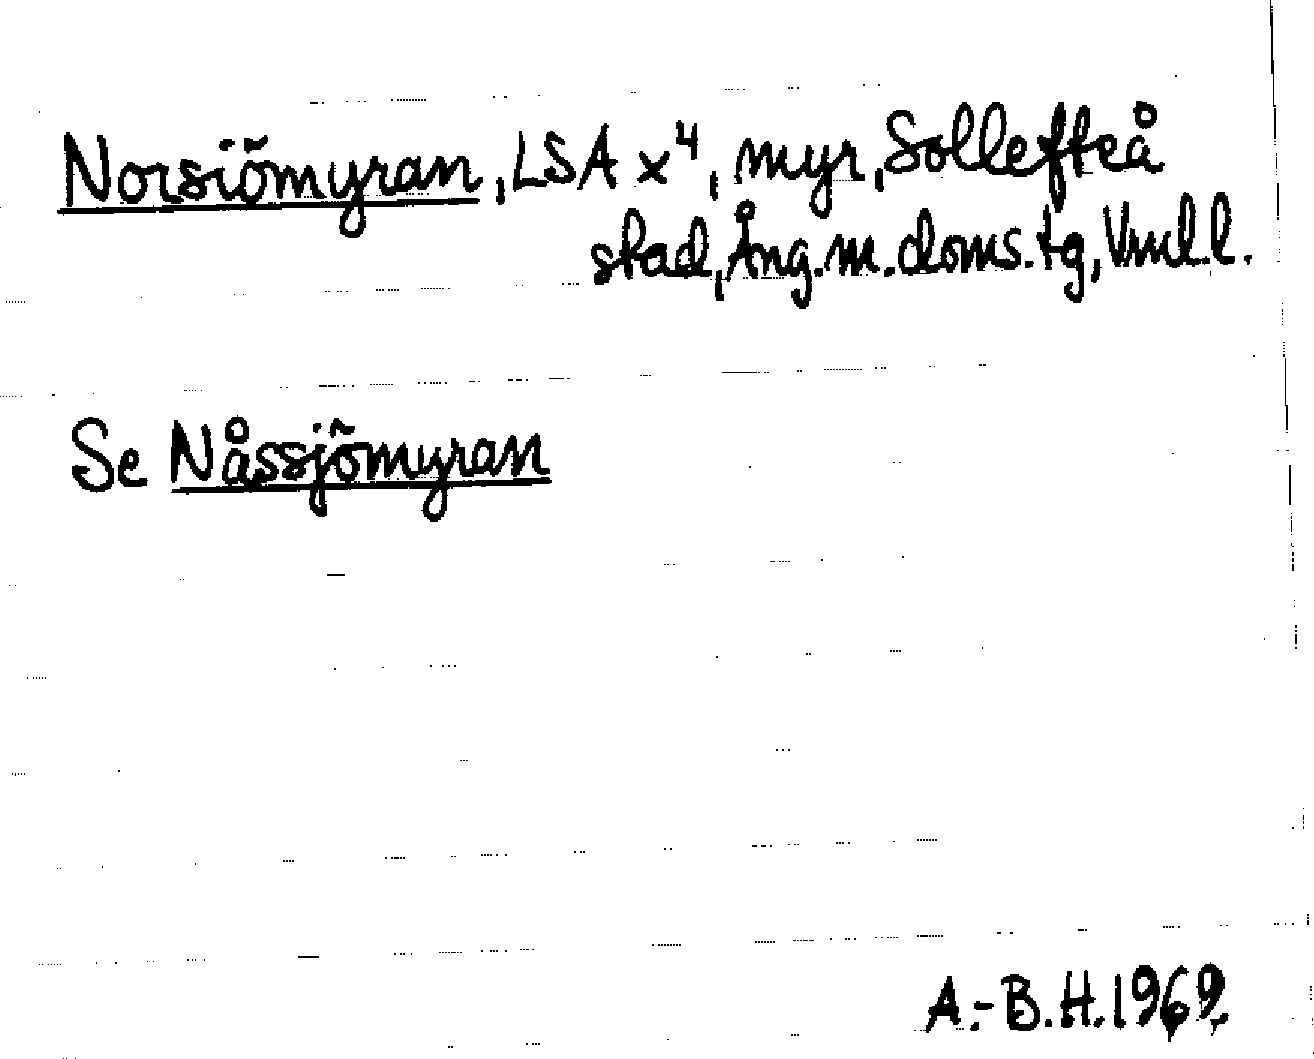 Norsiömyran, LSA x⁴, myr, Sollefteå
stad, Ång. m. doms. tg, Vnl. l.
Se Nåssjömyran
A.-B.H. 1969.